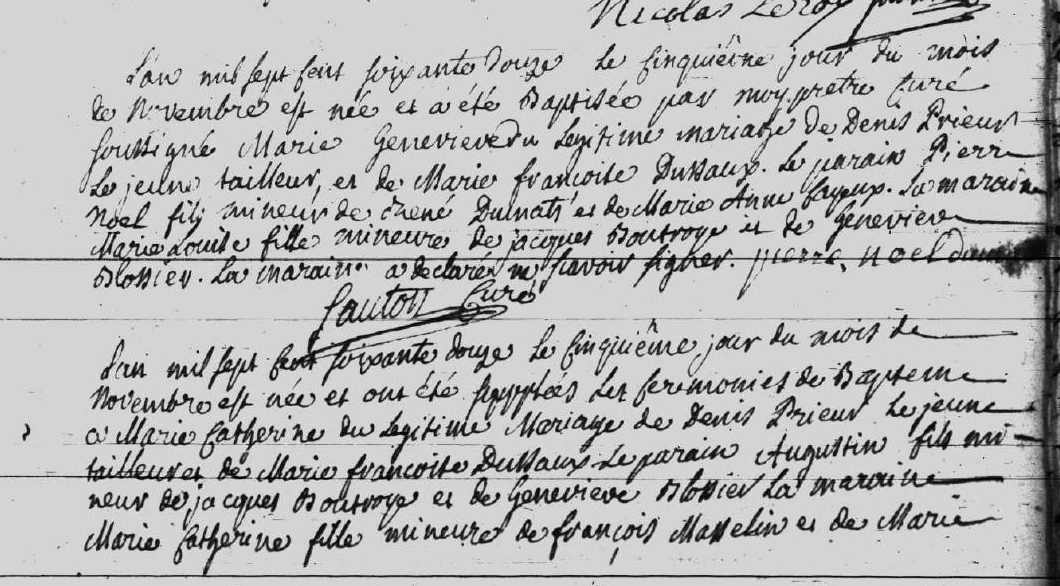 Nicolas Leroy
L'an mil sept cent soixante douze le cinquiême jour du mois
de Novembre est née et a été Baptisée par moy pretre Curé
soussigné Marie Genevieve du Legitime mariage de Denis Prieur
Le jeune tailleur, et de Marie françoise Dussaux. Le parain Pierre
Noel fils mineur de Réné et de Marie Anne Cayeux. La maraine
Marie Louise fille mineure de jacques Boutroye et de Genevieve
Blossier. La maraine a declarée ne sçavoir signer. pierre noel
Curé
L'an mil sept cent soixante douze le cinquiême jour du mois de
Novembre est née et ont été supplées les ceremonies de Bapteme
a Marie Catherine du Legitime Mariage de Denis Prieur Le jeune
tailleur et de Marie françoise Dussaux. Le parain Augustin fils mi-
neur de jacques Boutroye et de Genevieve Blossier La maraine
Marie Catherine fille mineure de françois Masselin et de Marie